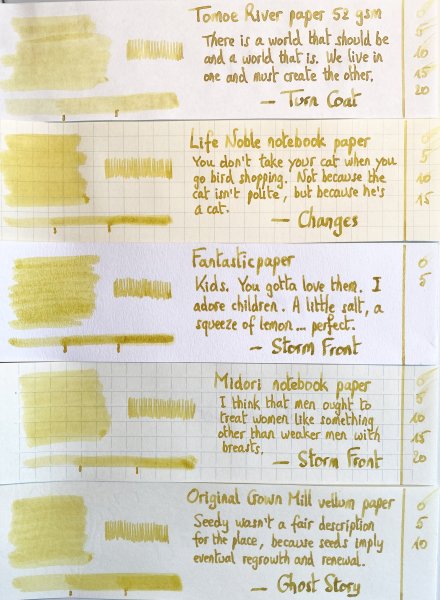 Tomoe River paper 52 gsm
There is a world that should be
and a world that is. We live in
one and must create the other.
— Turn Coat
0
5
10
15
20
Life Noble notebook paper
You don't take your cat when you
go bird shopping. Not because the
cat isn't polite, but because he's
a cat.
— Changes
0
5
10
15
Fantasticpaper
Kids. You gotta love them. I
adore children. A little salt, a
squeeze of lemon... perfect.
— Storm Front
0
5
Midori notebook paper
I think that men ought to
treat women like something
other than weaker men with
breasts.
— Storm Front
0
5
10
15
20
Original Crown Mill vellum paper
Seedy wasn't a fair description
for the place, because seeds imply
eventual regrowth and renewal.
— Ghost Story
0
5
10